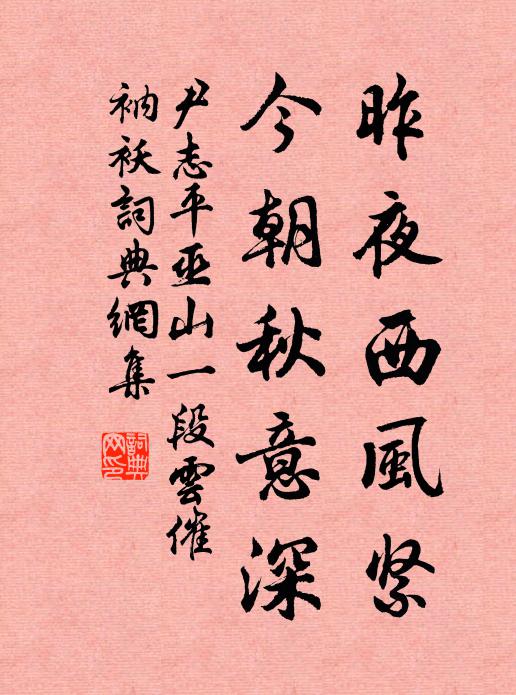 昨夜西風緊
今朝秋意深
尹志平巫山一段雲催
衲袄詞典網集
詞典網印